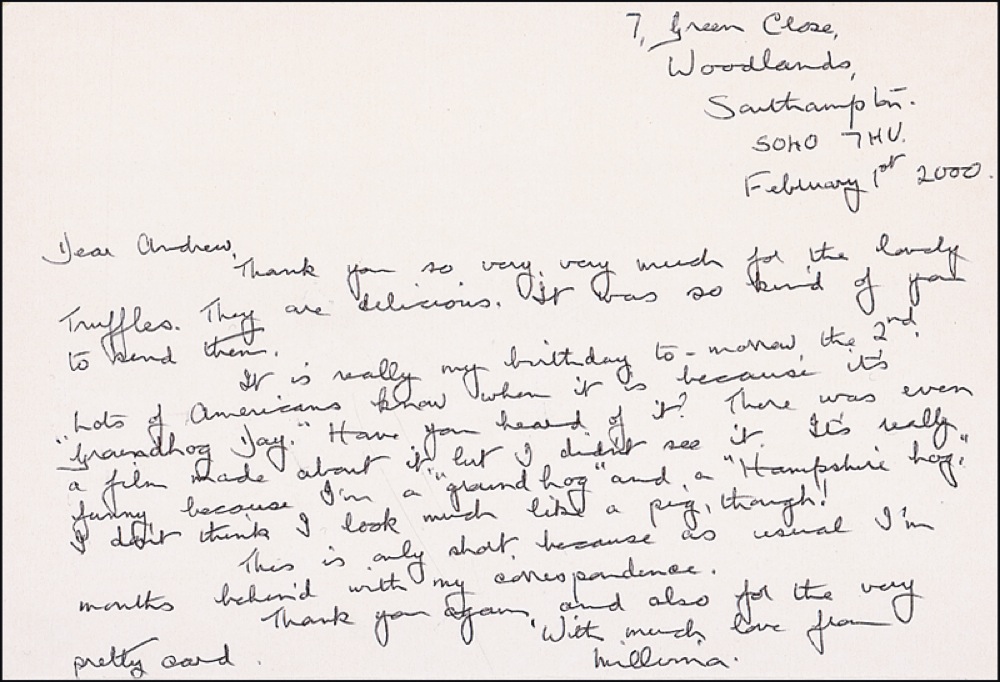 7, Green Close,
Woodlands,
Southampton.
SO40 7HU.
February 1st 2000.
Dear Andrew,
Thank you so very, very much for the lovely
Truffles. They are delicious. It was so kind of you
to send them.
It is really my birthday to-morrow, the 2nd.
Lots of Americans know when it is because it's
"Groundhog Day." Have you heard of it? There was even
a film made about it, but I didn't see it. It's really
funny, because I'm a "ground hog" and a "Hampshire hog,"
I don't think I look much like a pig, though!
This is only short, because as usual I'm
months behind with my correspondence.
Thank you again, and also for the very
pretty card.
With much love from
Millvina.